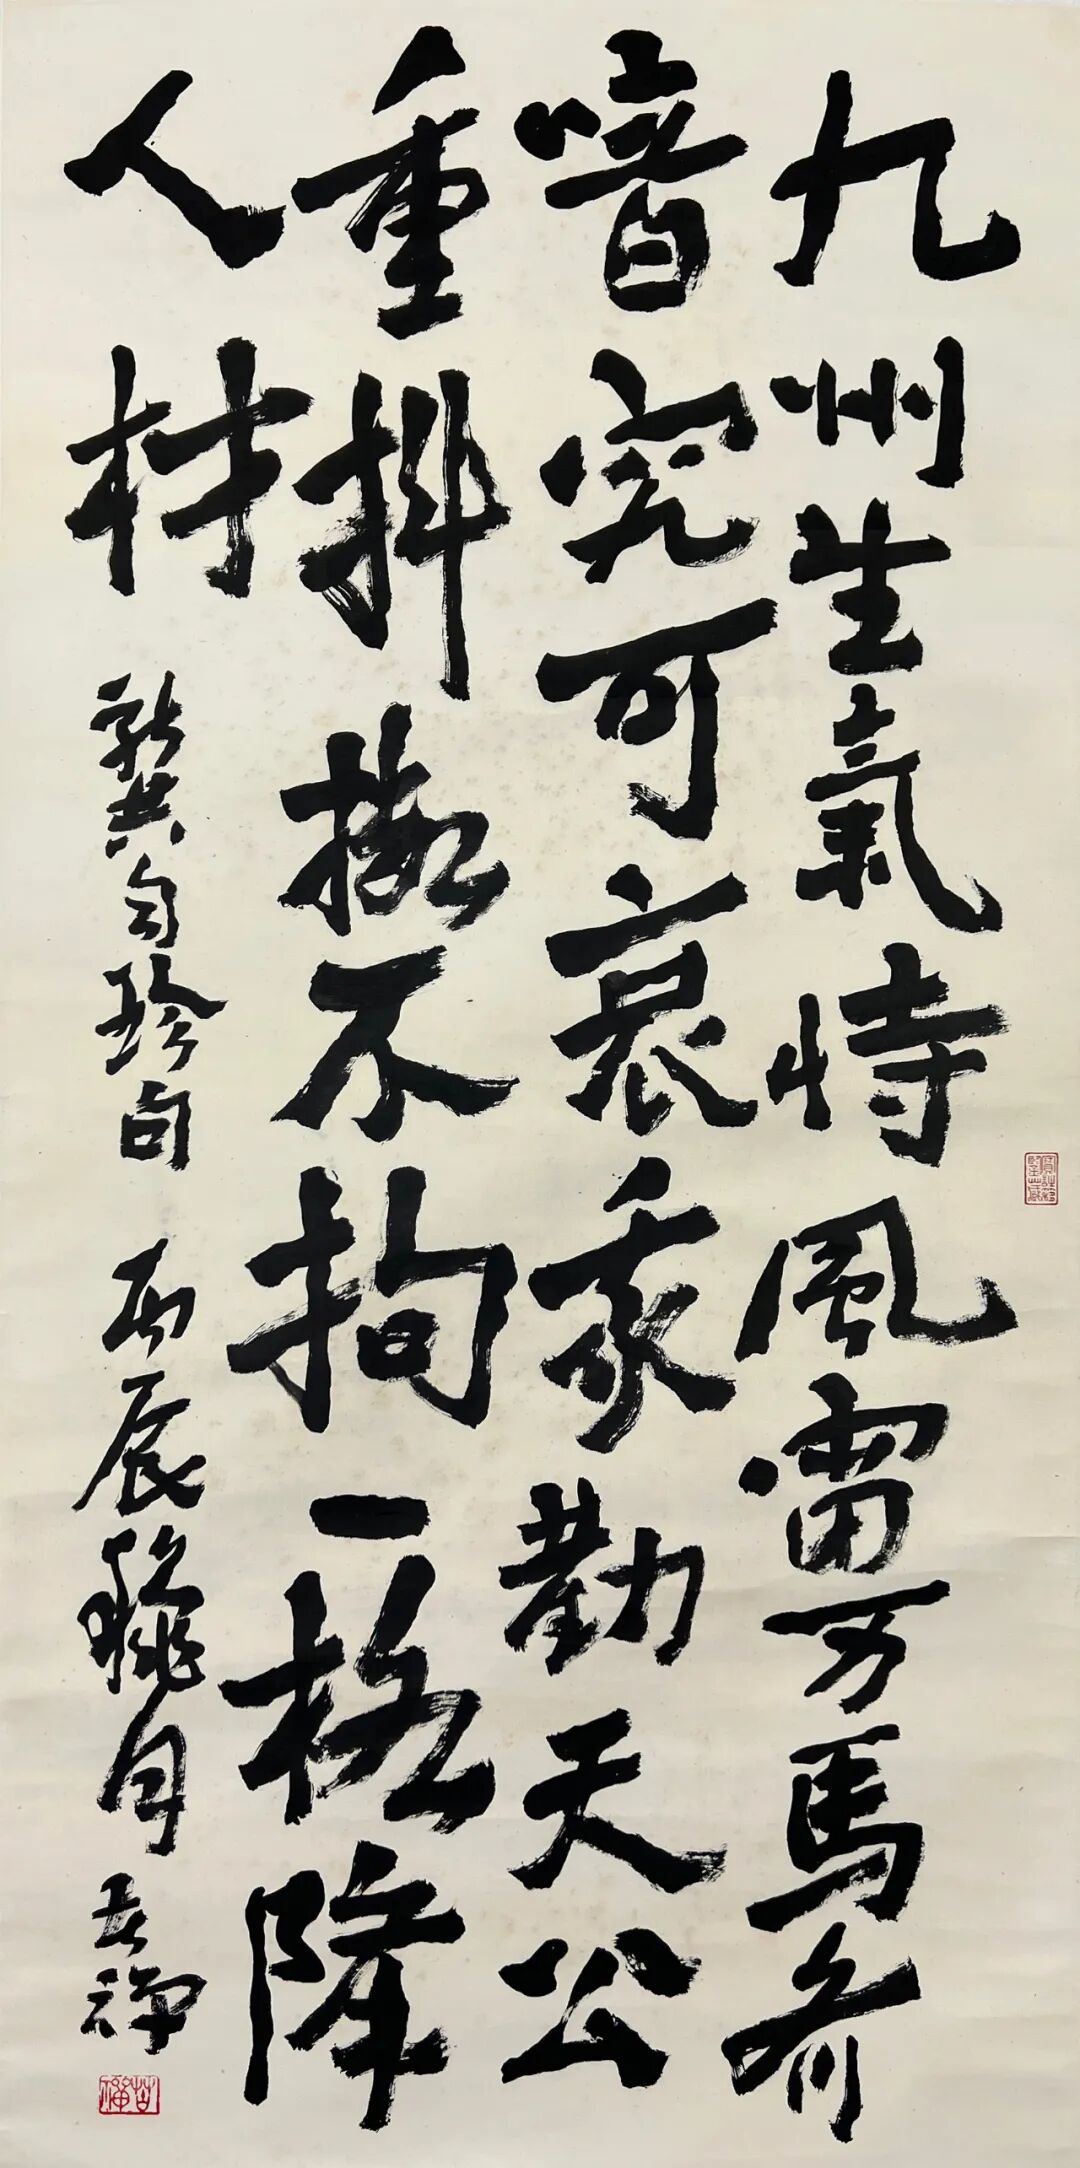 九州生氣恃風雷万馬齐
喑究可哀我勸天公
重抖擞不拘一格降
人材
龔自珍句 丙辰 月 苦禅
苦禪